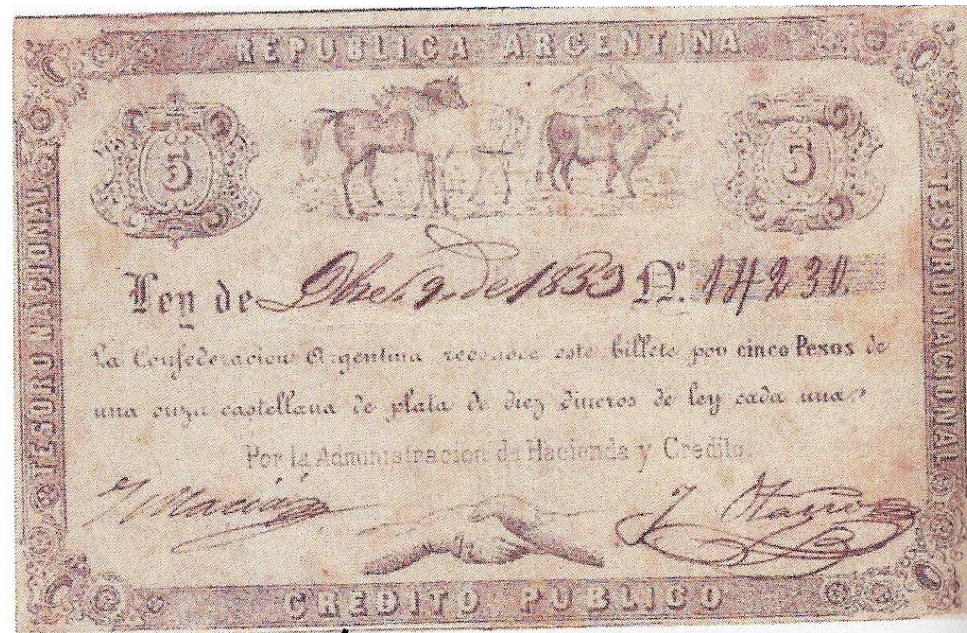 REPUBLICA ARGENTINA
TESORO NACIONAL
5
5
TESORO NACIONAL
Ley de Dbre. 9. de 1853 Nº. 14230.
La Confederacion Argentina reconoce este billete por cinco Pesos de
una onza castellana de plata de diez dineros de ley cada uno.
Por la Administracion de Hacienda y Credito.
CREDITO PUBLICO